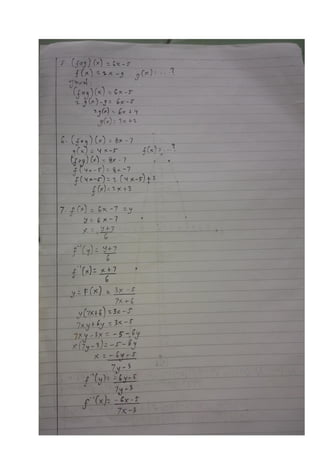 5. (fog)(x) = 6x-5
f(x) = 2x-9 g(x) = ...?
Jawab:
(fog)(x) = 6x-5
2 g(x)-9 = 6x-5
2g(x) = 6x+4
g(x) = 3x+2
6. (fog)(x) = 8x-7
g(x) = 4x-5 f(x) = ...?
(fog)(x) = 8x-7
f(4x-5) = 8x-7
f(4x-5) = 2(4x-5)+3
f(x) = 2x+3
7. f(x) = 6x-7 = y
y = 6x-7
x = y+7/6
f⁻¹(y) = y+7/6
f⁻¹(x) = x+7/6
y = F(x) = 3x-5/7x+6
y(7x+6) = 3x-5
7xy+6y = 3x-5
7xy-3x = -5-6y
x(7y-3) = -5-6y
x = -6y-5/7y-3
f⁻¹(y) = -6y-5/7y-3
f⁻¹(x) = -6x-5/7x-3